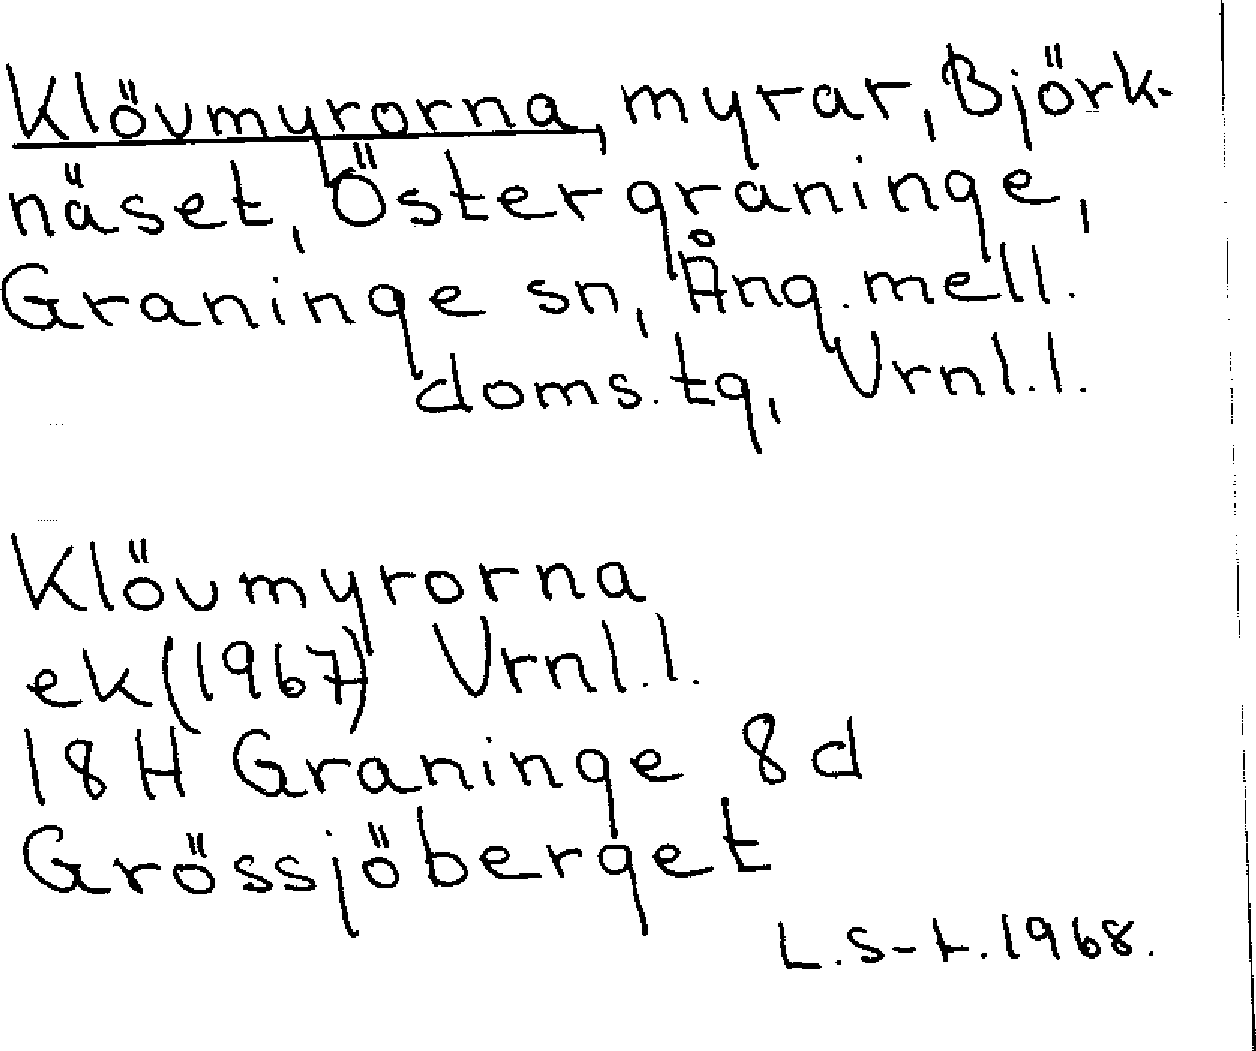 Klövmyrorna, myrar, Björk-
näset, Östergraninge,
Graninge sn, Ång. mell.
doms. tg, Vrnl. l.
Klövmyrorna
ek (1967) Vrnl. l.
18H Graninge 8d
Grössjöberget
L. S-t. 1968.